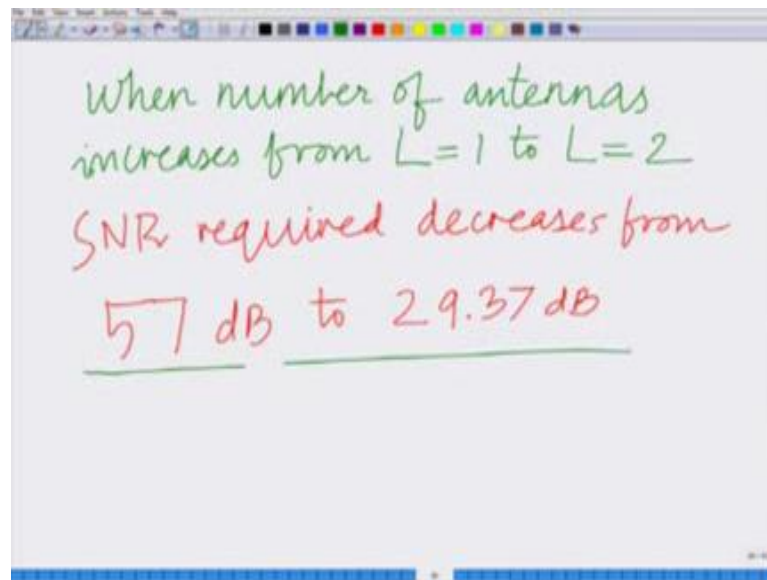 when number of antennas
increases from L = 1 to L = 2
SNR required decreases from
57 dB to 29.37 dB